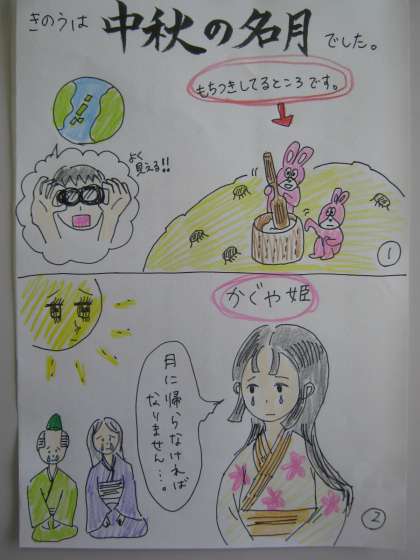 きのうは 中秋の名月 でした。
もちつきしてるところです。
よく
見える!!
1
かぐや姫
月に帰らなければ
なりません…。
2